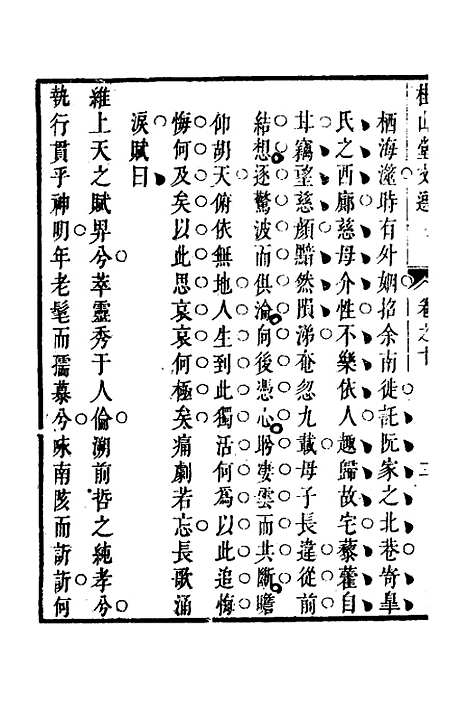 堂文選 卷之十
栖海澨時有外姻招余南徙託阮家之北巷寄皐
氏之西廊慈母介性不樂依人趣歸故宅藜藿自
甘竊望慈顔黯然隕涕奄忽九載母子長違從前
結想逐驚波而俱淪向後憑心聆凄雲而共斷瞻
仰胡天俯依無地人生到此獨活何為以此追悔
悔何及矣以此思哀哀何極矣痛劇若忘長歌涌
淚賦曰
維上天之賦畀兮萃靈秀于人倫溯前哲之純孝兮
執行貫乎神明年老髦而孺慕兮咏南陔而訢訢何